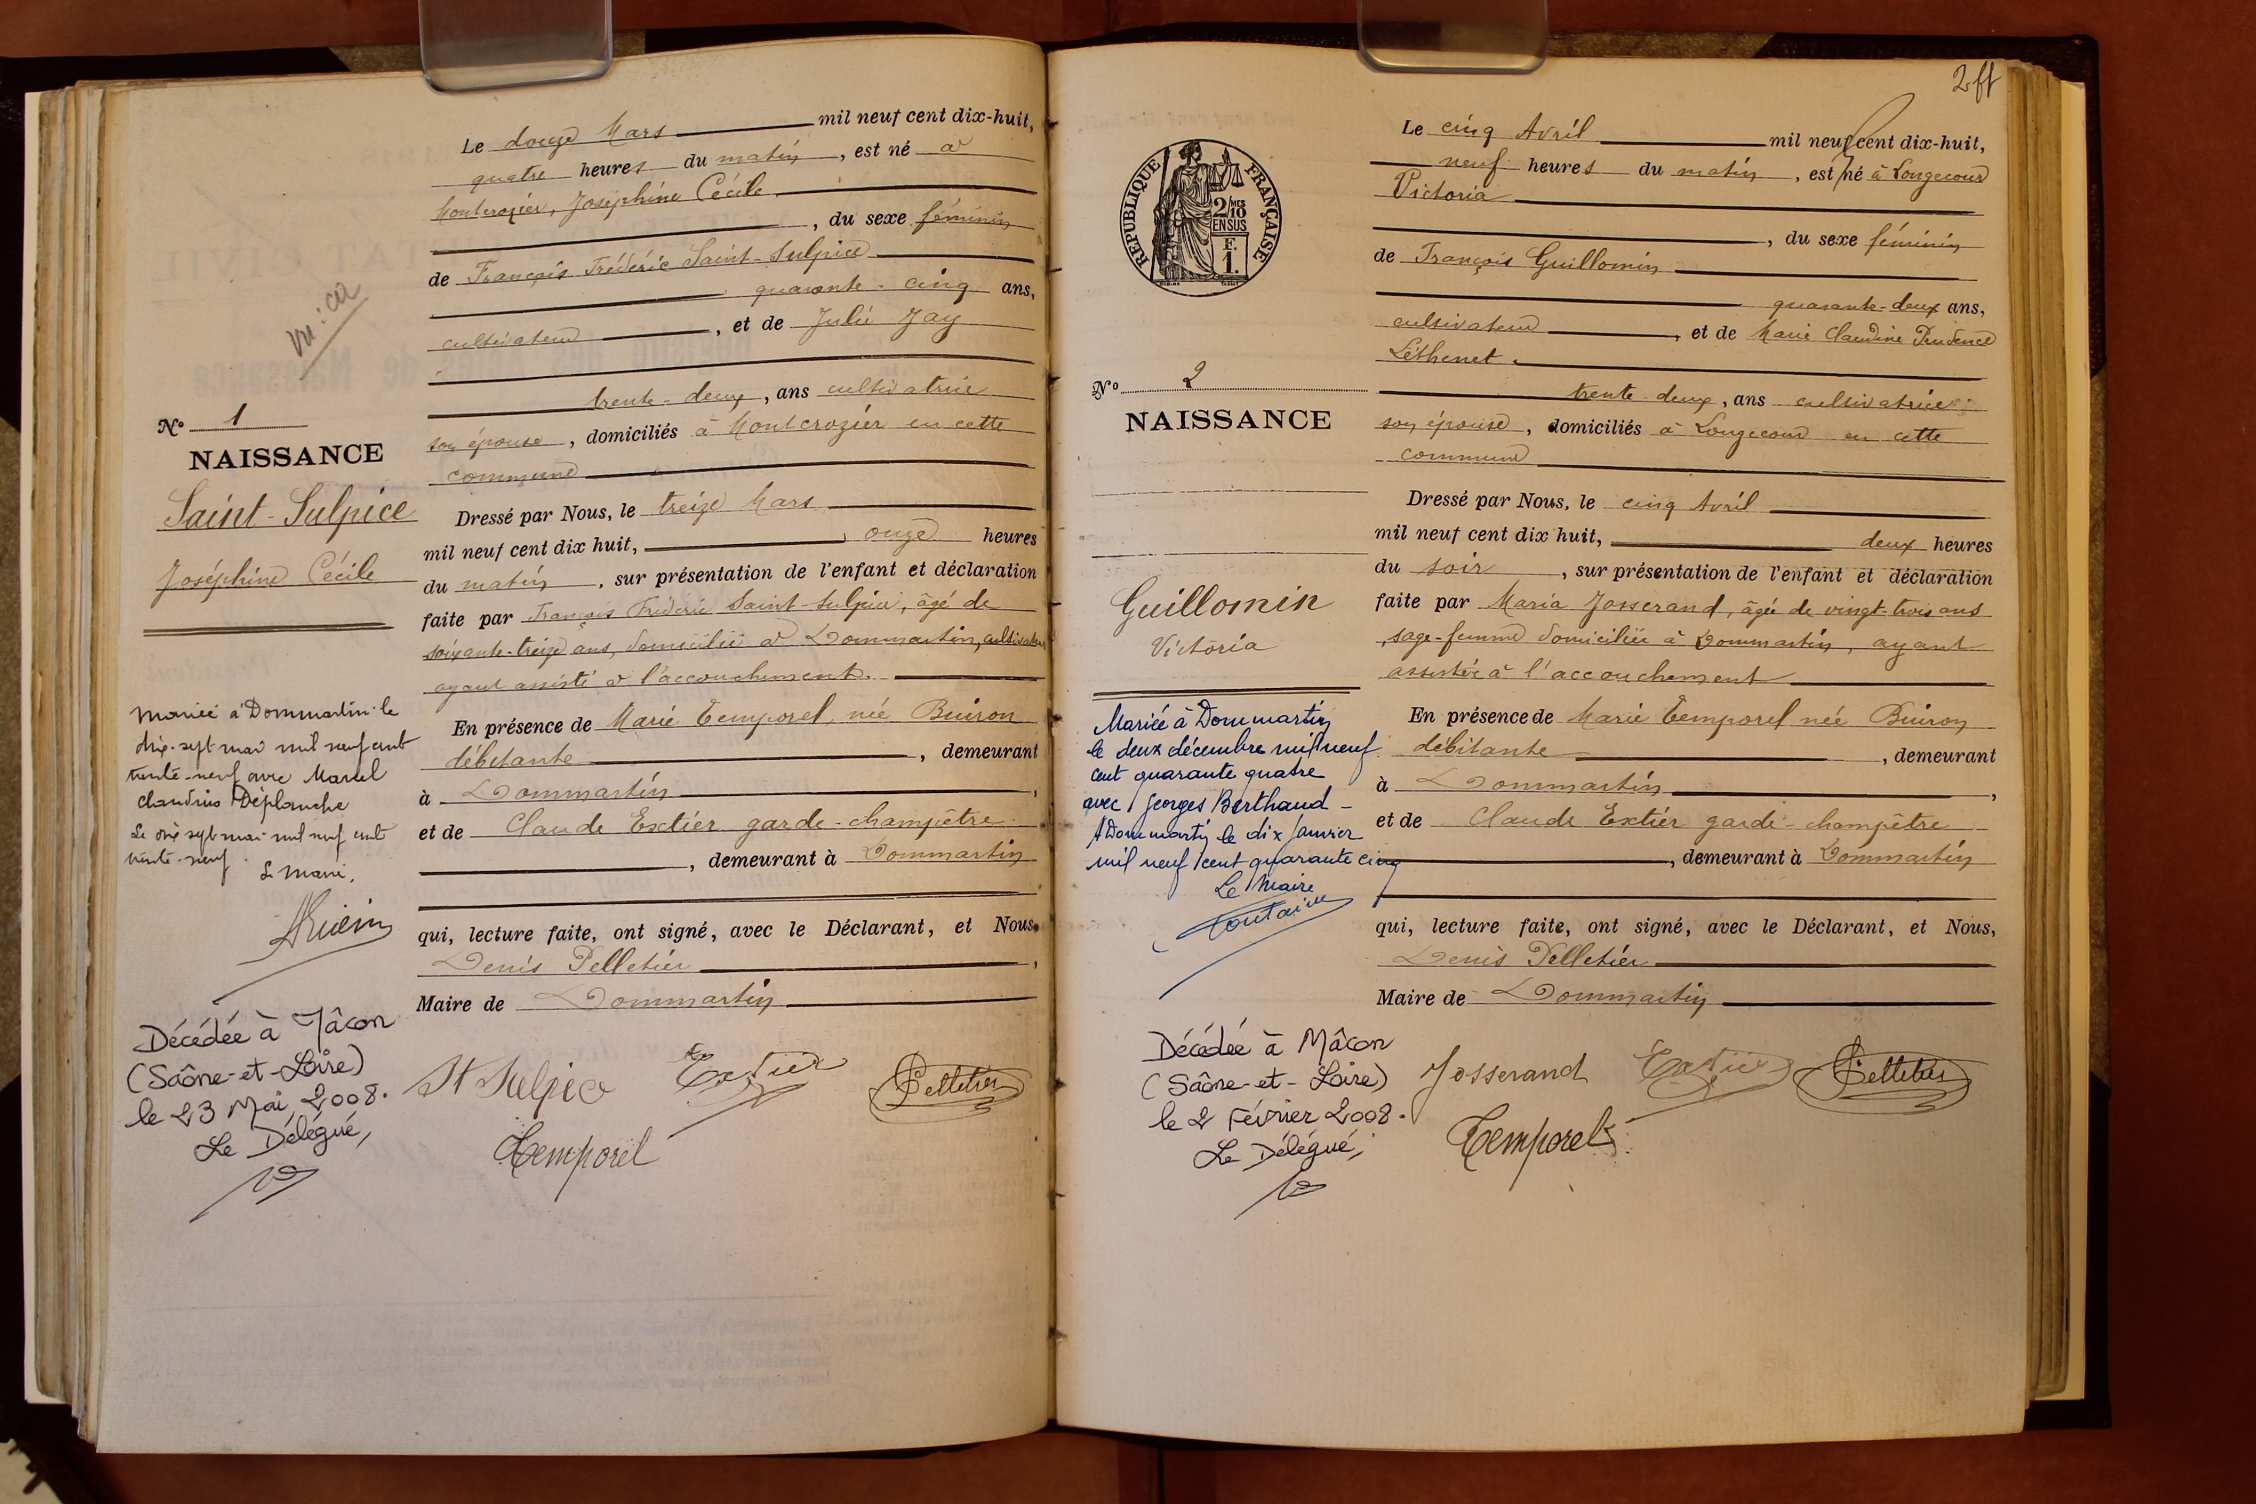 Le douze Mars mil neuf cent dix-huit,
quatre heures du matin, est né à
Montcrozier, Joséphine Cécile
, du sexe féminin
de François Frédéric Saint-Sulpice
quarante-cinq ans,
cultivateur, et de Julie Jay
trente-deux, ans cultivatrice
son épouse, domiciliés à Montcrozier en cette
commune
Dressé par Nous, le treize Mars
mil neuf cent dix huit, onze heures
du matin, sur présentation de l'enfant et déclaration
faite par François Frédéric Saint-Sulpice, âgé de
soixante-treize ans, domicilié à Dommartin, cultivateur
ayant assisté à l'accouchement.
En présence de Marie Temporel, née Buiron
débitante, demeurant
à Dommartin,
et de Claude Extier garde-champêtre
, demeurant à Dommartin
qui, lecture faite, ont signé, avec le Déclarant, et Nous,
Denis Pelletier,
Maire de Dommartin
St Sulpice Extier Pelletier
Temporel
N° 1
NAISSANCE
Saint-Sulpice
Joséphine Cécile
Mariée à Dommartin le
dix-sept mai mil neuf cent
trente-neuf avec Marcel
Claudius Déplanche
Le dix sept mai mil neuf cent
trente-neuf.
Le Maire,
Décédée à Mâcon
(Saône-et-Loire)
le 23 Mai 2008.
Le Délégué,
2 ff
REPUBLIQUE FRANÇAISE
2/10 MES
EN SUS
F.
1.
Le cinq Avril mil neuf cent dix-huit,
neuf heures du matin, est né à Longecour
Victoria
, du sexe féminin
de François Guillomin
quarante-deux ans,
cultivateur, et de Marie Claudine Prudence
Léthenet.
trente-deux, ans cultivatrice
son épouse, domiciliés à Longecour en cette
commune
Dressé par Nous, le cinq Avril
mil neuf cent dix huit, deux heures
du soir, sur présentation de l'enfant et déclaration
faite par Maria Josserand, âgée de vingt-trois ans
, sage-femme domiciliée à Dommartin, ayant
assistée à l'accouchement
En présence de Marie Temporel née Buiron
débitante, demeurant
à Dommartin,
et de Claude Extier garde-champêtre
, demeurant à Dommartin
qui, lecture faite, ont signé, avec le Déclarant, et Nous,
Denis Pelletier
Maire de Dommartin
Josserand Extier Pelletier
Temporel
N° 2
NAISSANCE
Guillomin
Victoria
Mariée à Dommartin
le deux décembre mil neuf
cent quarante quatre
avec Georges Berthaud -
A Dommartin le dix janvier
mil neuf cent quarante cinq
Le Maire
Fontaine
Décédée à Mâcon
(Saône-et-Loire)
le 2 Février 2008.
Le Délégué,